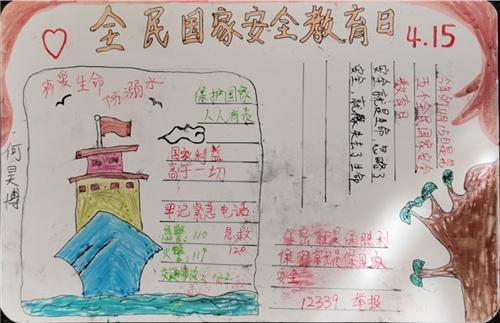 全民国家安全教育日
4.15
珍爱生命
防溺水
保护国家
人人有责
国家利益
高于一切
牢记紧急电话
匪警:110
急救
火警:119
120
交通事故:122
每年的4月15日是
全民国家安全
教育日
安全就是生命,忽略了
安全,就像失去了生命
保密就是保胜利
保密就是保国家
安全
12339 举报
何昊博